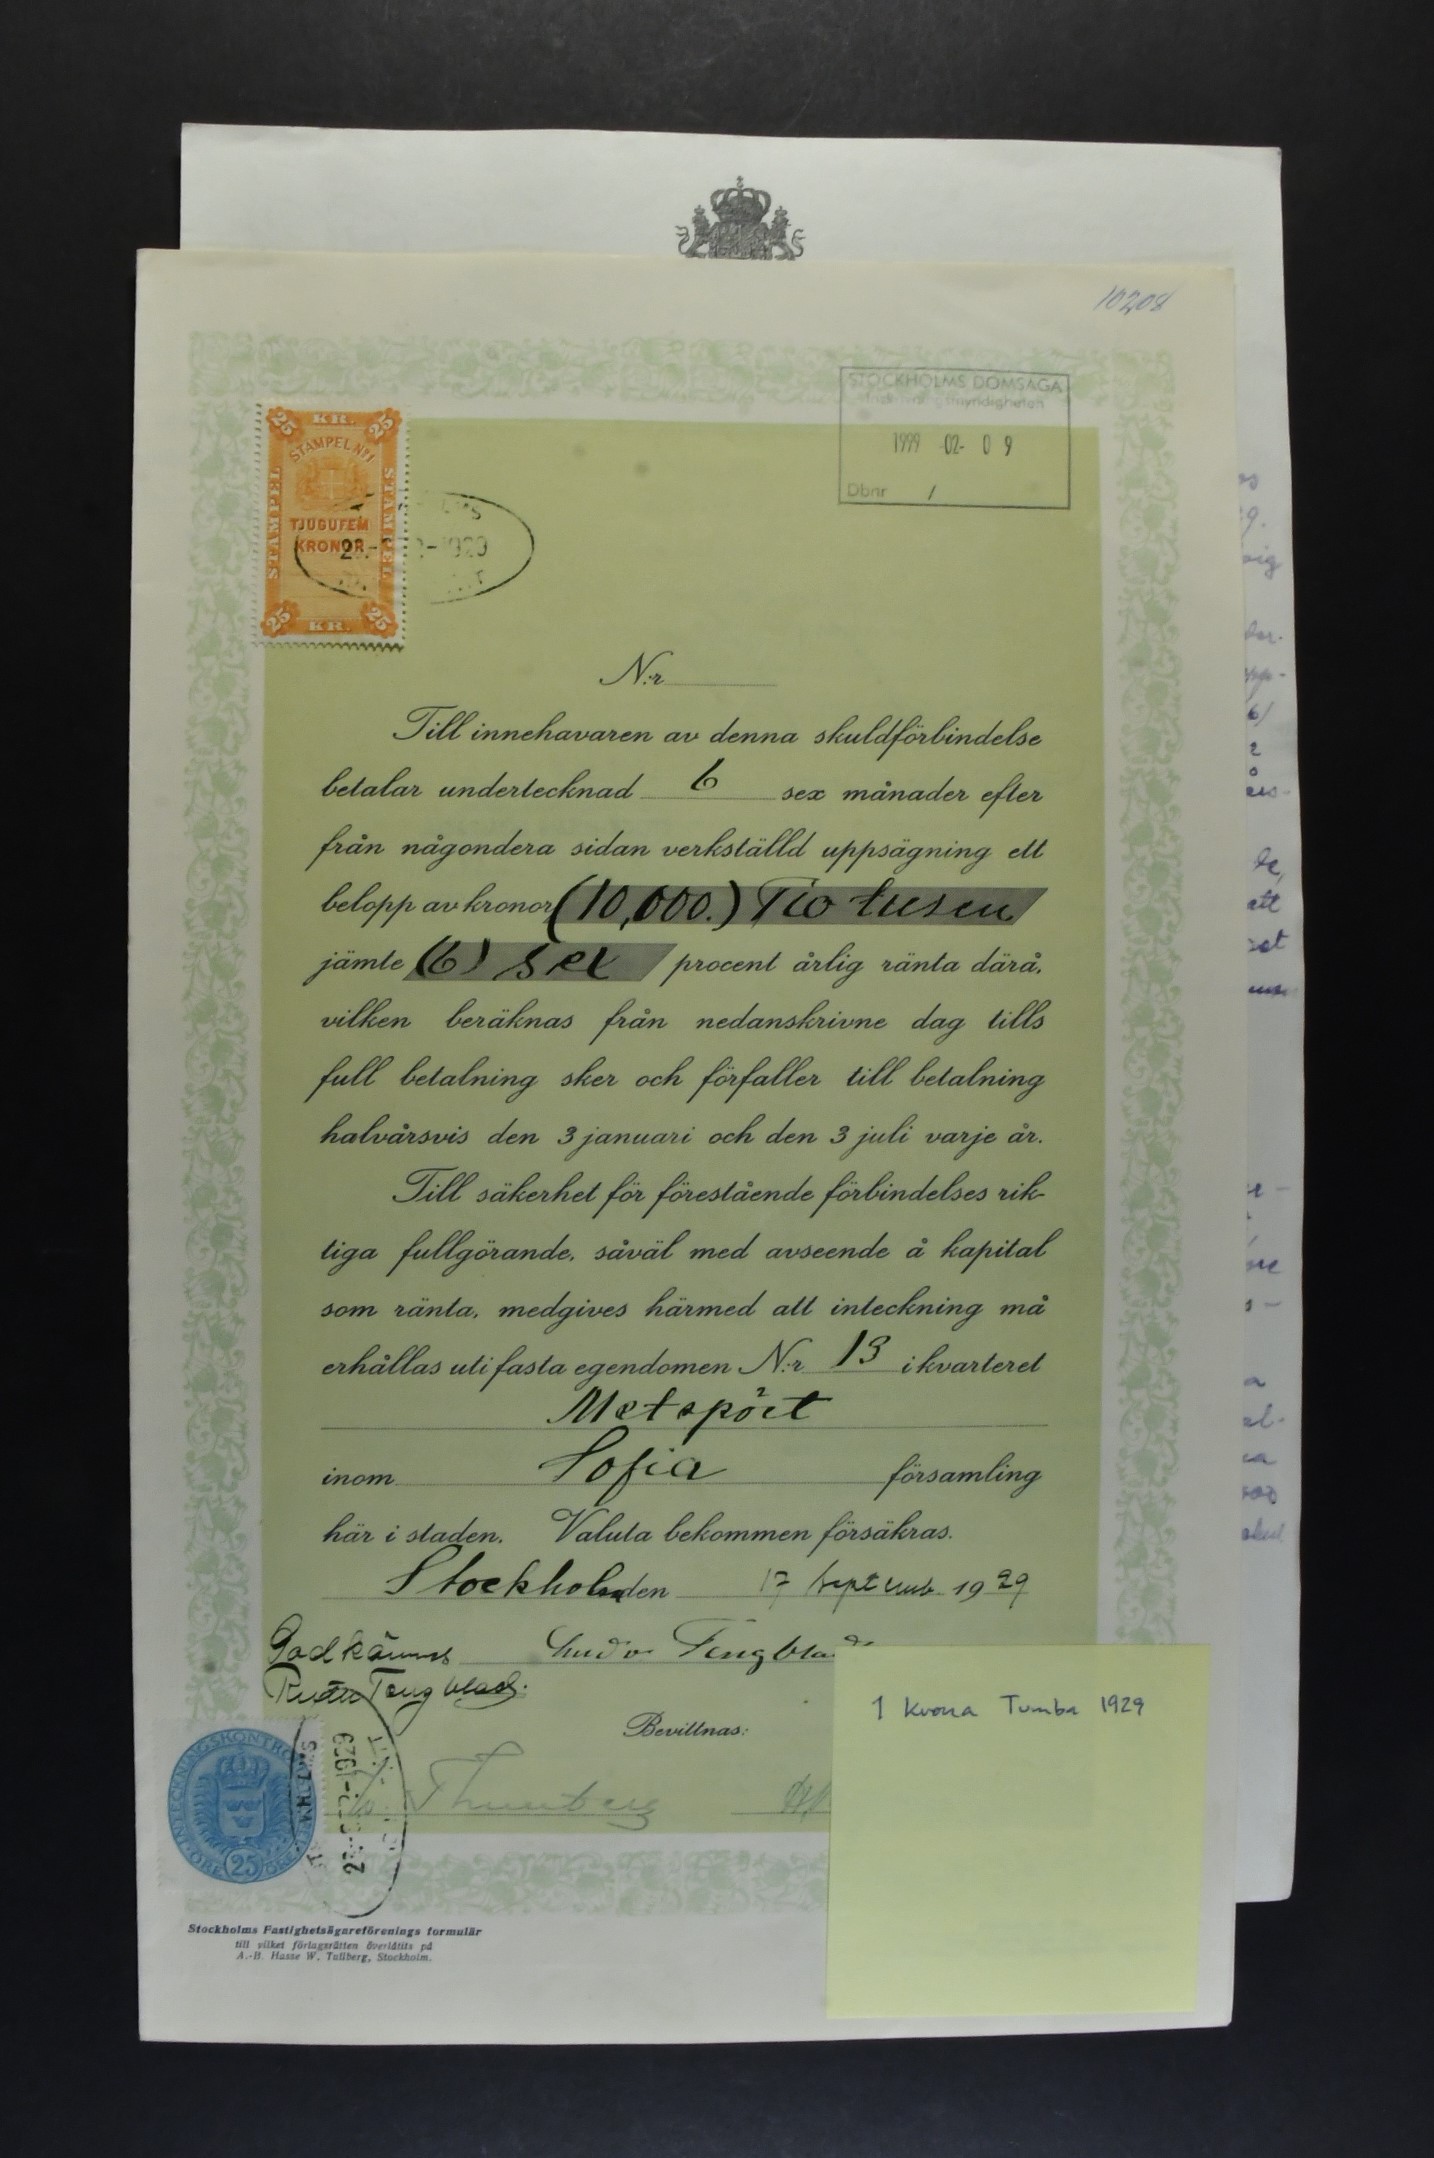 10208
STOCKHOLMS DOMSAGA
1999 02- 0 9
Dbnr /
25 KR. 25
STÄMPEL No 1
STÄMPEL
STÄMPEL
TJUGUFEM
KRONOR
25 KR. 25
-1929
N:r
Till innehavaren av denna skuldförbindelse
betalar undertecknad 6 sex månader efter
från någondera sidan verkställd uppsägning ett
belopp av kronor (10,000.) Tio tusen
jämte (6) sex procent årlig ränta därå,
vilken beräknas från nedanskrivne dag tills
full betalning sker och förfaller till betalning
halvårsvis den 3 januari och den 3 juli varje år.
Till säkerhet för förestående förbindelses rik-
tiga fullgörande, såväl med avseende å kapital
som ränta, medgives härmed att inteckning må
erhållas uti fasta egendomen N:r 13 i kvarteret
Metspöet
inom Sofia församling
här i staden. Valuta bekommen försäkras.
Stockholm den 17 septemb. 1929
Godkännes Tengblad
Tengblad.
Bevittnas:
Thunberg
1 krona Tumba 1929
INTECKNINGSKONTROLL
ÖRE 25 ÖRE
-1929
Stockholms Fastighetsägareförenings formulär
till vilket förlagsrätten överlåtits på
A.-B. Hasse W. Tullberg, Stockholm.